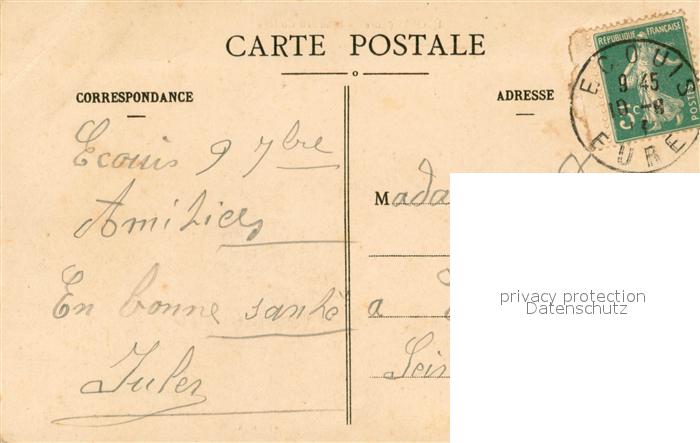 CARTE POSTALE
CORRESPONDANCE
ADRESSE
RÉPUBLIQUE FRANÇAISE
POSTES
5c
ECOUIS
9 45
EURE
Ecouis 9 7bre
Amitiés
En bonne santé
Jules
Mada
a
Sein
privacy protection
Datenschutz